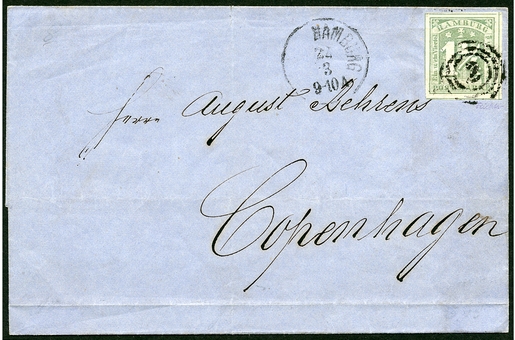 HAMBURG
HAMBURG
9-10 A
Herrn August Behrens
Copenhagen